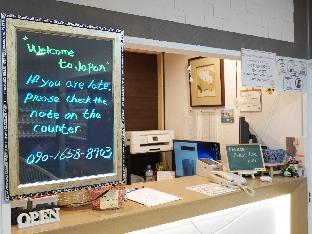 "Welcome
to Japan"
If you are late,
please check the
note on the
counter
090-1658-8903
OPEN